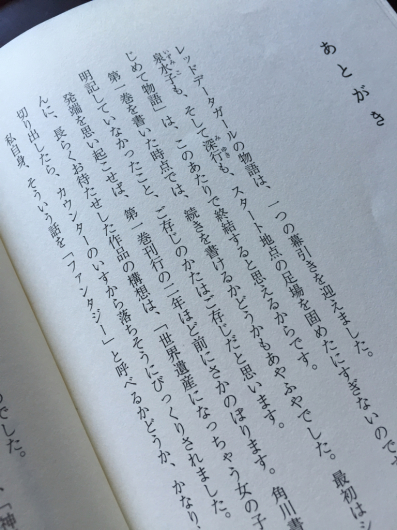 あとがき
レッドデータガールの物語は、一つの幕引きを迎えました。最初はシ
泉水子も、そして深行も、スタート地点の足場を固めたにすぎないので
じめて物語」は、このあたりで終結すると思えるからです。
第一巻を書いた時点では、続きを書けるかどうかもあやふやでした。
明記していなかったこと、ご存じのかたはご存じだと思います。角川書
発端を思い起こせば、第一巻刊行の二年ほど前にさかのぼります。
んに、長らくお待たせした作品の構想は、「世界遺産になっちゃう女の子
切り出したら、カウンターのいすから落ちそうにびっくりされました。
私自身、そういう話を「ファンタジー」と呼べるかどうか、かなり、
でした。
、「神